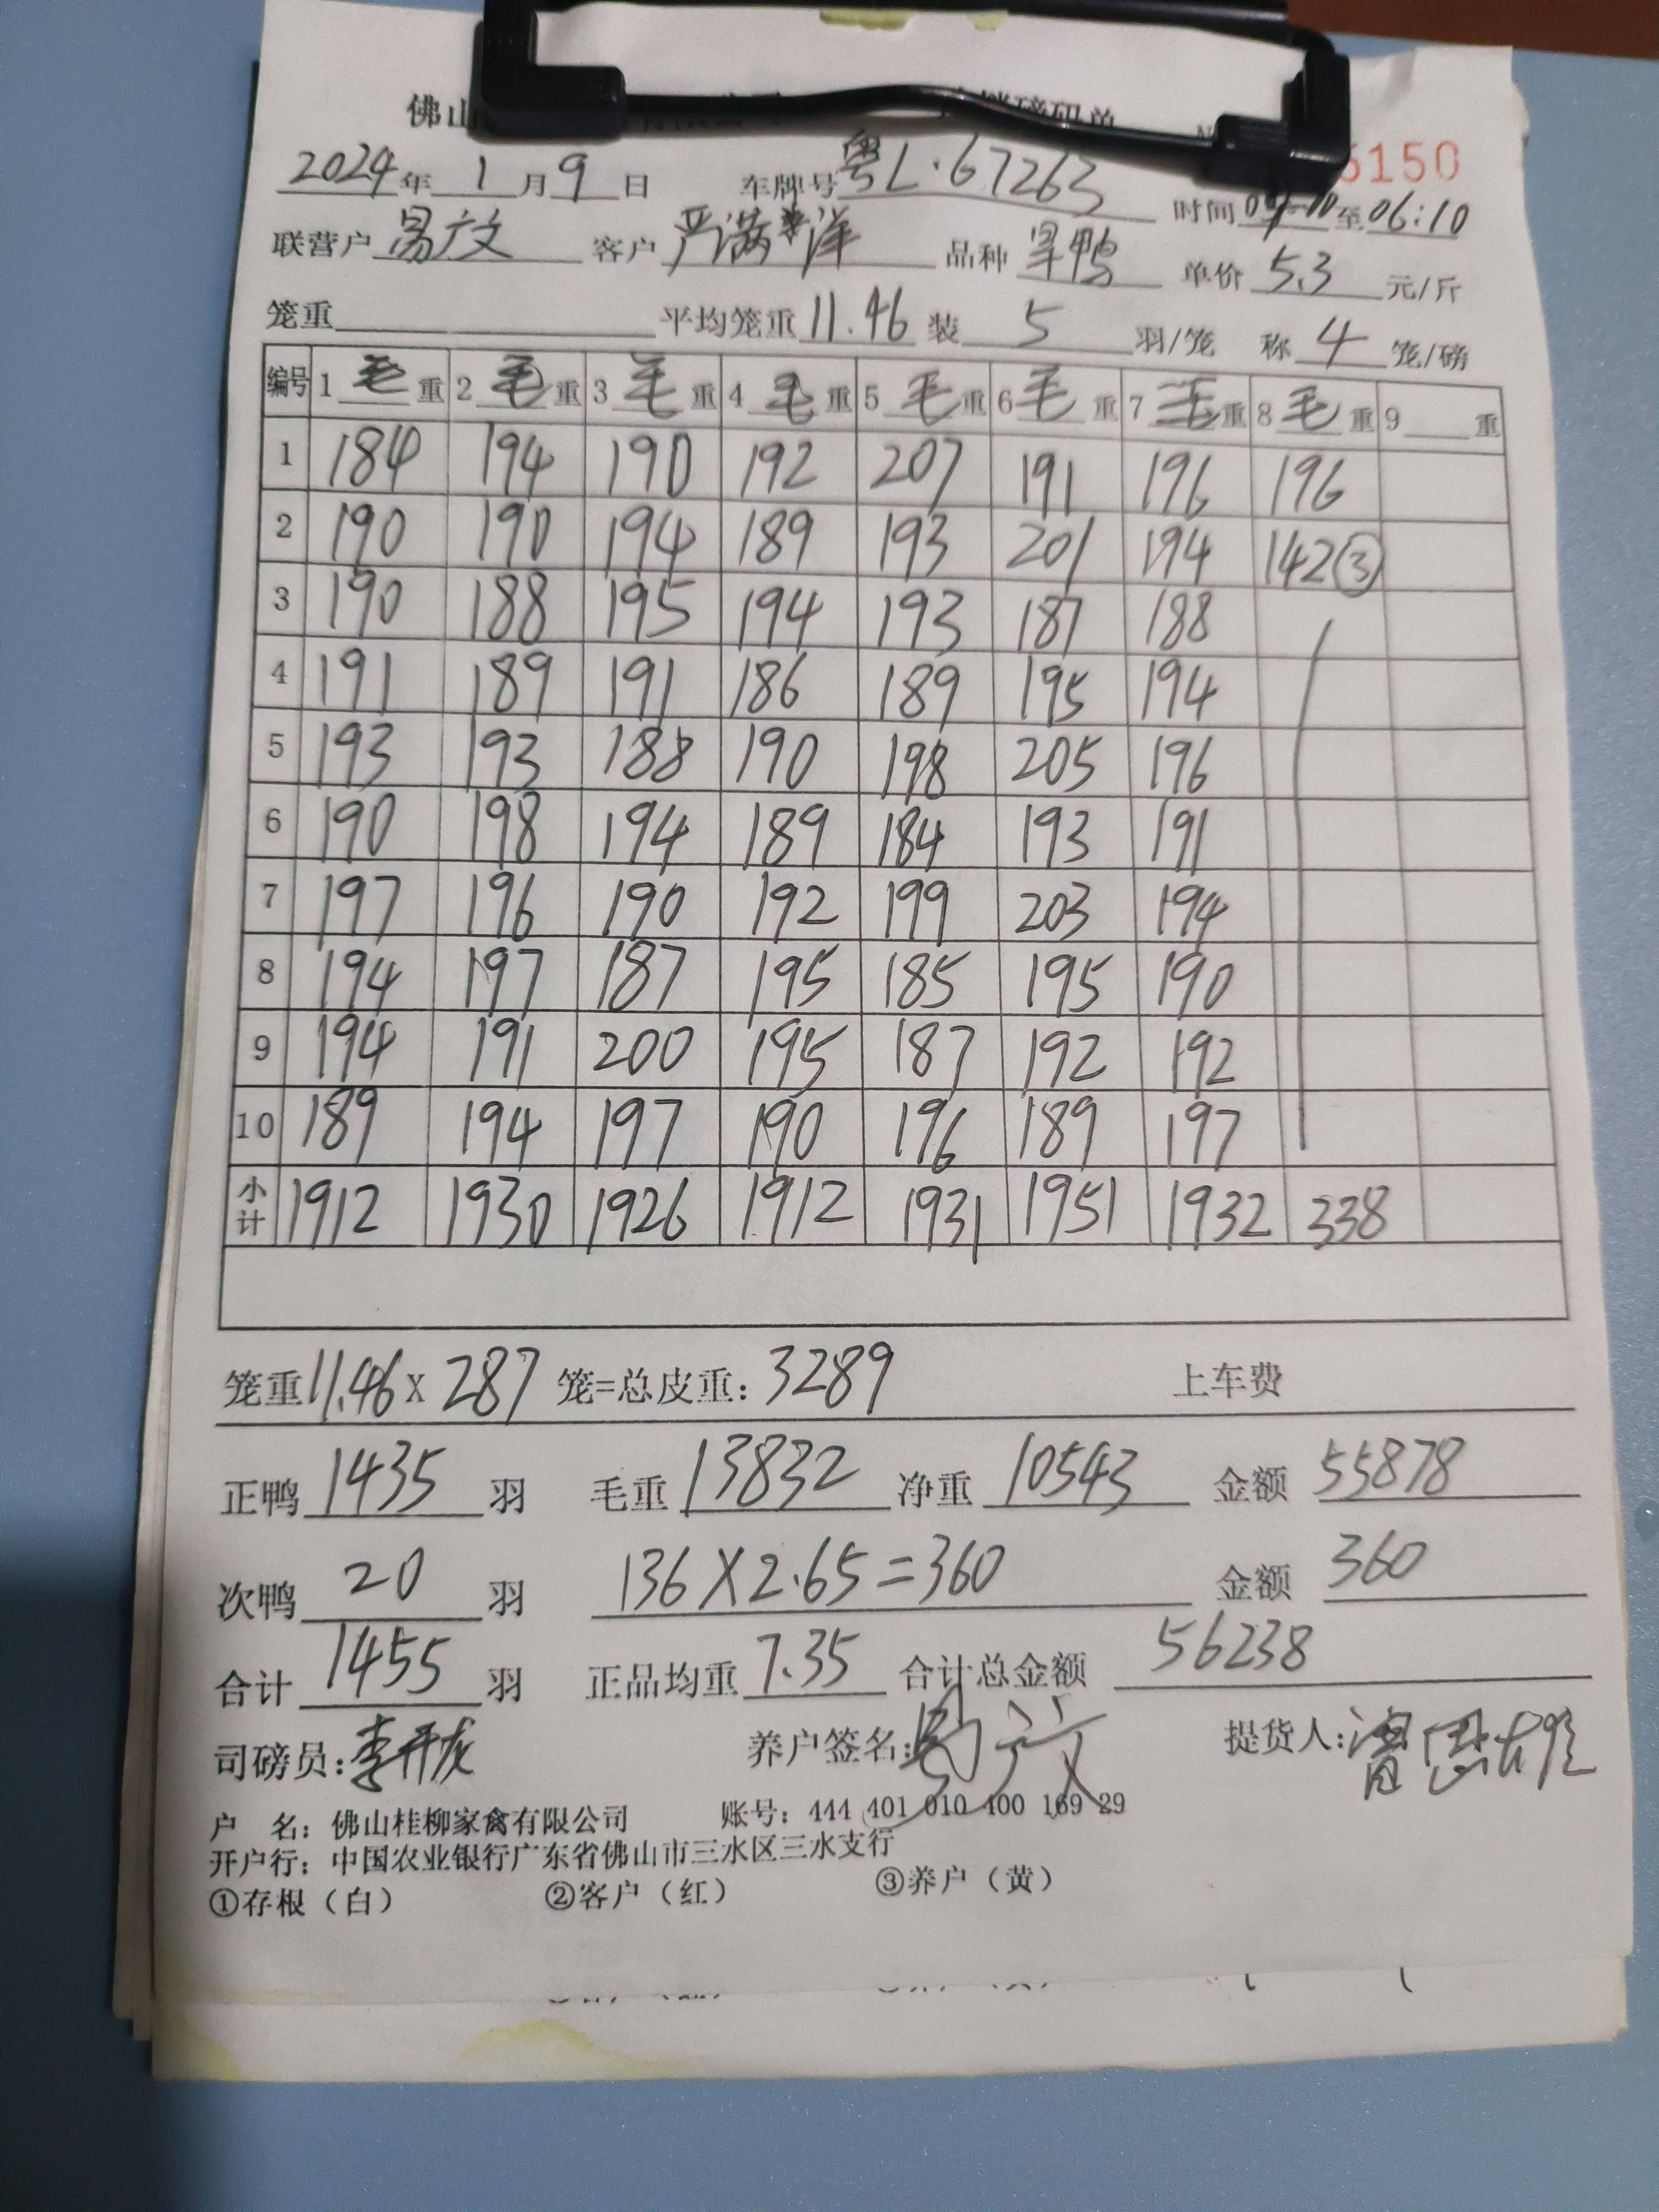 佛山 磅码单
5150
2024年 1 月 9 日 车牌号 粤L·67263 时间 至06:10
联营户 易广文 客户 严满洋 品种 旱鸭 单价 5.3 元/斤
笼重 平均笼重 11.46 装 5 羽/笼 称 4 笼/磅
编号 1 毛 重 2 毛 重 3 毛 重 4 毛 重 5 毛 重 6 毛 重 7 毛 重 8 毛 重 9 重
1 184 194 190 192 207 191 196 196
2 190 190 194 189 193 201 194 142③
3 190 188 195 194 193 187 188
4 191 189 191 186 189 195 194
5 193 193 188 190 198 205 196
6 190 198 194 189 184 193 191
7 197 196 190 192 199 203 194
8 194 197 187 195 185 195 190
9 194 191 200 195 187 192 192
10 189 194 197 190 196 189 197
小计 1912 1930 1926 1912 1931 1951 1932 338
笼重11.46 X 287 笼=总皮重: 3289 上车费
正鸭 1435 羽 毛重 13832 净重 10543 金额 55878
次鸭 20 羽 136 X 2.65 = 360 金额 360
合计 1455 羽 正品均重 7.35 合计总金额 56238
司磅员: 李开龙 养户签名: 易广文 提货人:
户 名: 佛山桂柳家禽有限公司 账号: 444 401 010 400 169 29
开户行: 中国农业银行广东省佛山市三水区三水支行
①存根(白) ②客户(红) ③养户(黄)